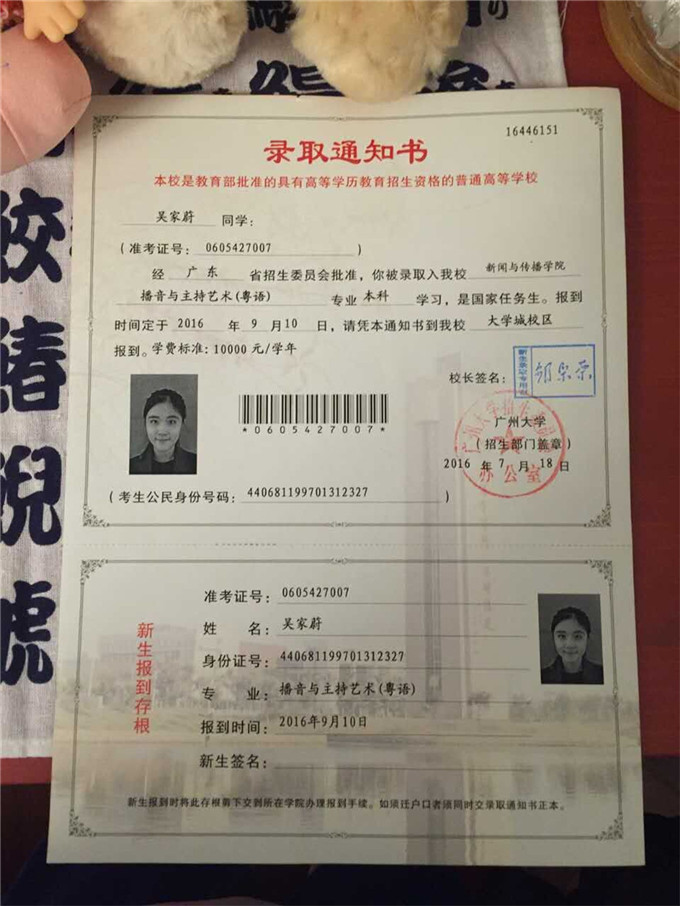 16446151
录取通知书
本校是教育部批准的具有高等学历教育招生资格的普通高等学校
吴家蔚 同学：
（准考证号： 0605427007 ）
经 广东 省招生委员会批准，你被录取入我校 新闻与传播学院
播音与主持艺术(粤语) 专业 本科 学习，是国家任务生。报到
时间定于 2016 年 9 月 10 日，请凭本通知书到我校 大学城校区
报到。学费标准：10000 元/学年
校长签名：
新生录取专用章
*0605427007*
广州大学
（招生部门盖章）
2016 年 7 月 18 日
办公室
（考生公民身份号码： 440681199701312327 ）
新生报到存根
准考证号： 0605427007
姓 名： 吴家蔚
身份证号： 440681199701312327
专 业： 播音与主持艺术(粤语)
报到时间： 2016年9月10日
新生签名：
新生报到时将此存根剪下交到所在学院办理报到手续。如须迁户口者须同时交录取通知书正本。